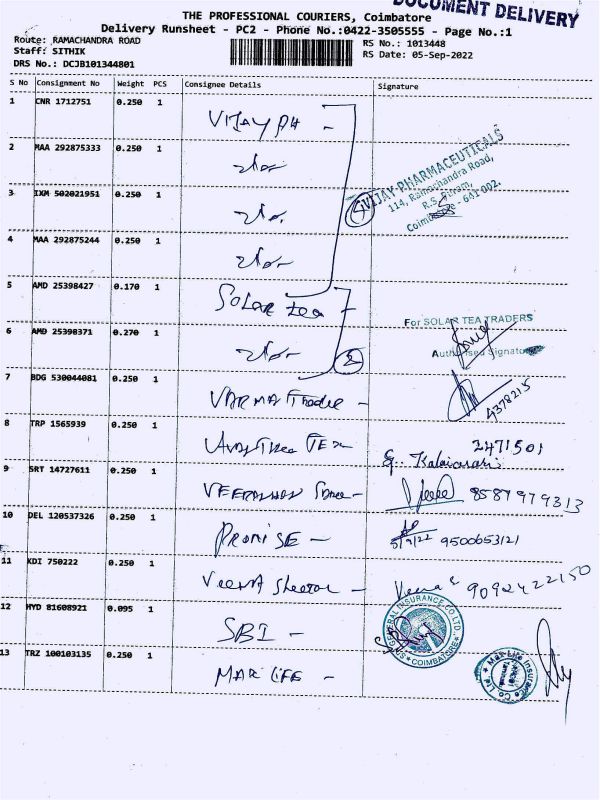 DOCUMENT DELIVERY
THE PROFESSIONAL COURIERS, Coimbatore
Delivery Runsheet - PC2 - Phone No.:0422-3505555 - Page No.:1
Route: RAMACHANDRA ROAD
RS No.: 1013448
Staff: SITHIK
RS Date: 05-Sep-2022
DRS No.: DCJB101344801
S No Consignment No Weight PCS Consignee Details Signature
1 CNR 1712751 0.250 1 VIJAY PH -
2 MAA 292875333 0.250 1
VIJAY PHARMACEUTICALS
114, Ramachandra Road,
R.S. Puram,
Coimbatore - 641 002.
3 IXM 502021951 0.250 1
4
4 MAA 292875244 0.250 1
5 AMD 25398427 0.170 1 SOLAR tea -
For SOLAR TEA TRADERS
6 AMD 25398371 0.270 1
2
Authorised Signatory
7 BDG 530044081 0.250 1 VARMA Trade -
4378215
8 TRP 1565939 0.250 1
2471501
G. Kalaiarasi
9 SRT 14727611 0.250 1
8587979313
10 DEL 120537326 0.250 1 PROMISE -
5/9/22 9500653121
11 KDI 750222 0.250 1 VEENA Sheetal - Veena 9092422150
12 HYD 81608921 0.095 1 SBI -
SBI GENERAL INSURANCE CO LTD
COIMBATORE
13 TRZ 100103135 0.250 1 MAX LIFE -
Max Life Insurance Co. Ltd.